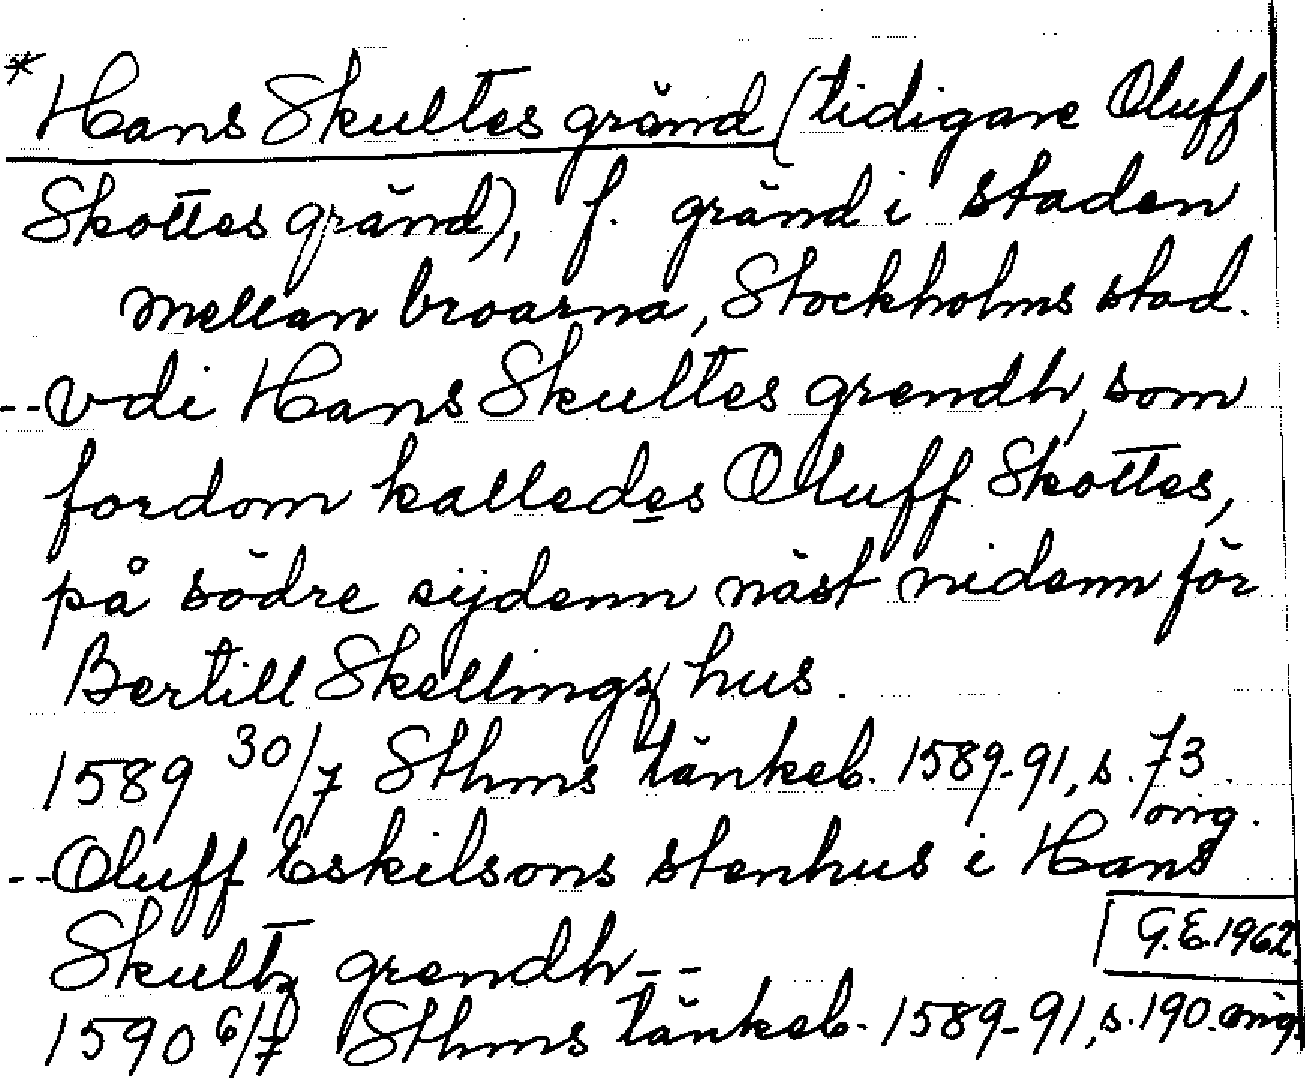 * Hans Skultes gränd (tidigare Oluff
Skottes gränd), f. gränd i staden
mellan broarna, Stockholms stad.
-- vdi Hans Skultes grendh, som
fordom kalledes Oluff Skottes,
på södre sijdenn näst nidenn för
Bertill Skellings hus.
1589 30/7 Sthms tänkeb. 1589-91, s. 73
orig.
-- Oluff Eskilsons stenhus i Hans
Skultz grendh --
G.E. 1962.
1590 6/7 Sthms tänkeb. 1589-91, s. 190. orig.